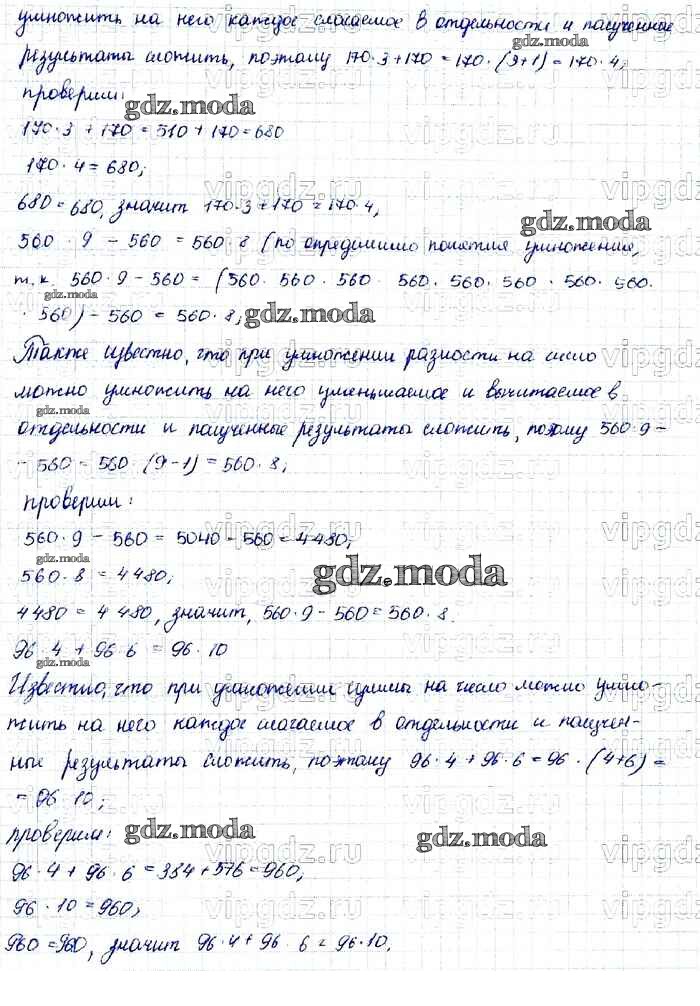 умножить на него каждое слагаемое в отдельности и полученные
gdz.moda
результаты сложить, поэтому 170·3+170=170·(3+1)=170·4;
vipgdz.ru
проверим:
gdz.moda
170·3+170=510+170=680
vipgdz.ru
170·4=680;
680=680, значит 170·3+170=170·4,
vipgdz.ru
gdz.moda
560·9-560=560·8 (по определению понятия умножения,
т.к. 560·9-560=(560·560·560·560·560·560·560·560·
gdz.moda
·560)-560=560·8;
gdz.moda
Также известно, что при умножении разности на число
vipgdz.ru
можно умножить на него уменьшаемое и вычитаемое в
gdz.moda
отдельности и полученные результаты сложить, поэтому 560·9-
-560=560·(9-1)=560·8;
vipgdz.ru
проверим:
560·9-560=5040-560=4480;
vipgdz.ru
gdz.moda
560·8=4480;
gdz.moda
4480=4480, значит, 560·9-560=560·8.
vipgdz.ru
96·4+96·6=96·10
gdz.moda
Известно, что при умножении суммы на число можно умно-
vipgdz.ru
жить на него каждое слагаемое в отдельности и получен-
ные результаты сложить, поэтому 96·4+96·6=96·(4+6)=
vipgdz.ru
=96·10;
проверим:
gdz.moda
gdz.moda
96·4+96·6=384+576=960,
vipgdz.ru
96·10=960;
vipgdz.ru
960=960, значит 96·4+96·6=96·10.